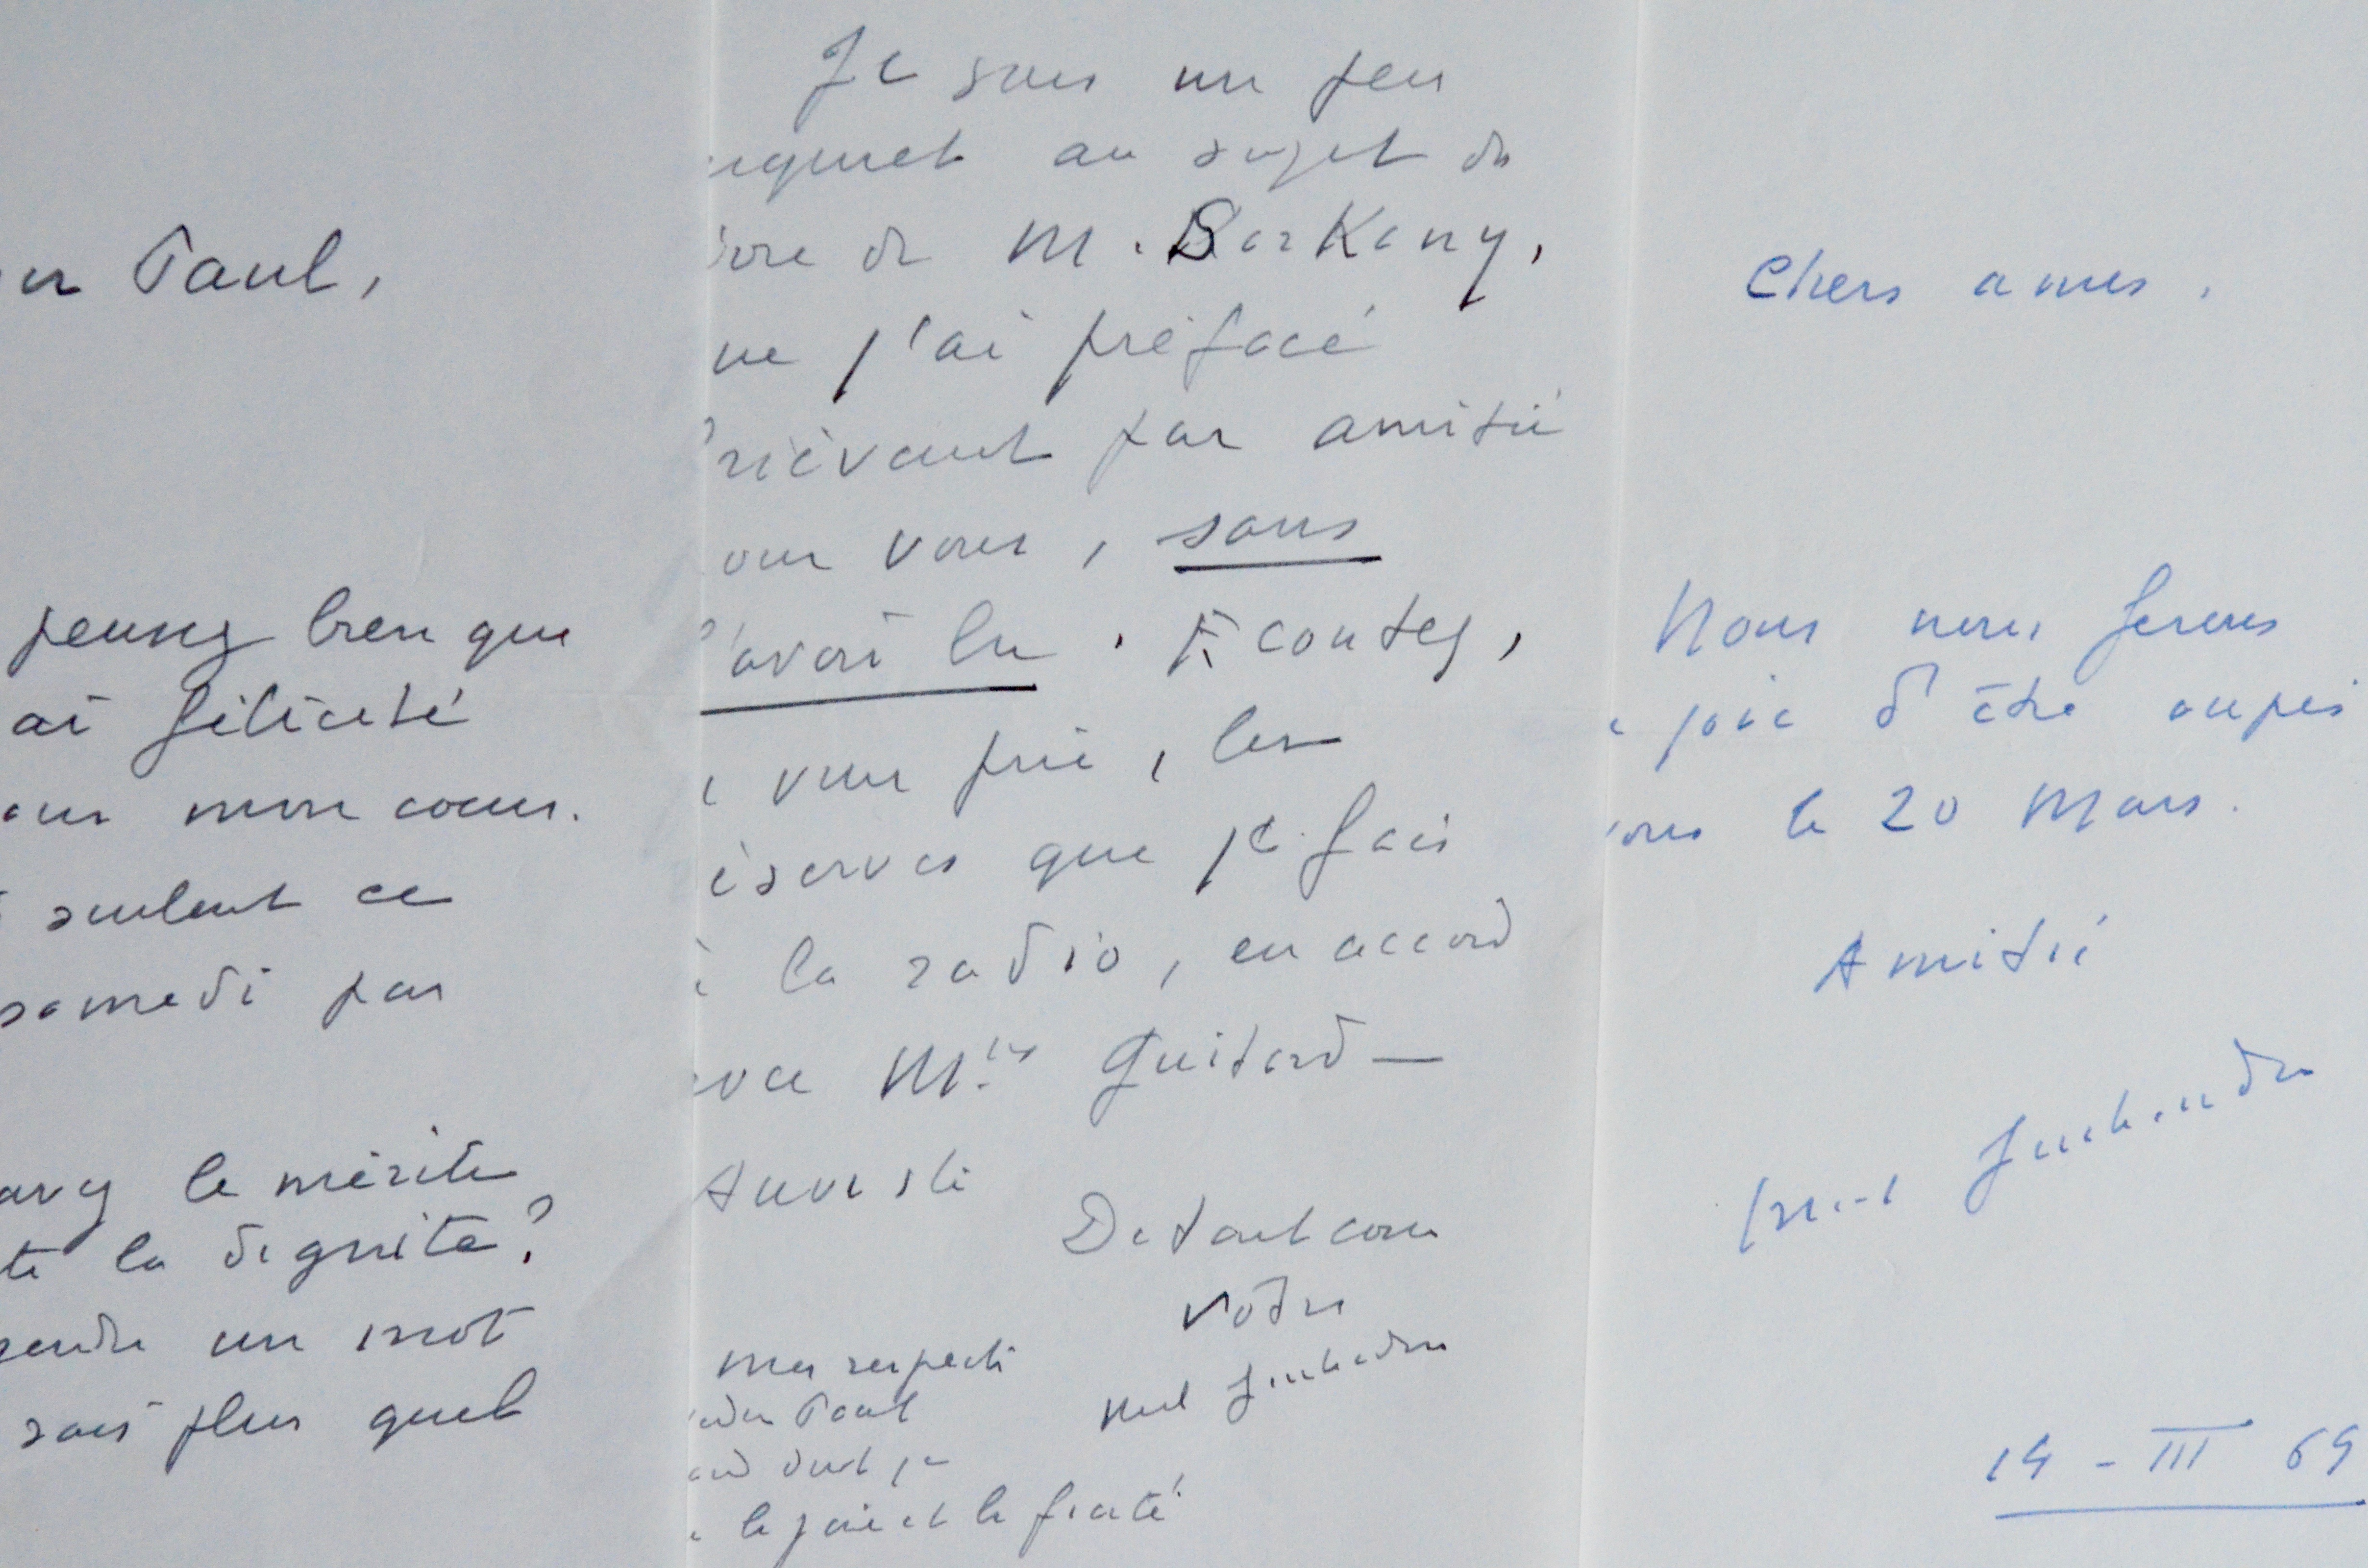 Paul,
pensez bien que
ai félicité
mon coeur.
seulent ce
samedi par
le mérite
la dignité?
un mot
sais plus quel
Je suis un peu
inquiet au sujet du
de M. Barkany,
que j'ai préfacé
par amitié
pour vous, sans
l'avoir lu. Ecoutez,
vous prie, les
réserves que je fais
à la radio, en accord
avec Mlle Guitard-
Auviste
De tout coeur
vôtre
Marcel Jouhandeau
mes respects
Paul
dont je
la joie et la fierté
Chers amis,
Nous nous ferons
joie d'être auprès
vous le 20 Mars.
Amitié
Marcel Jouhandeau
III 69